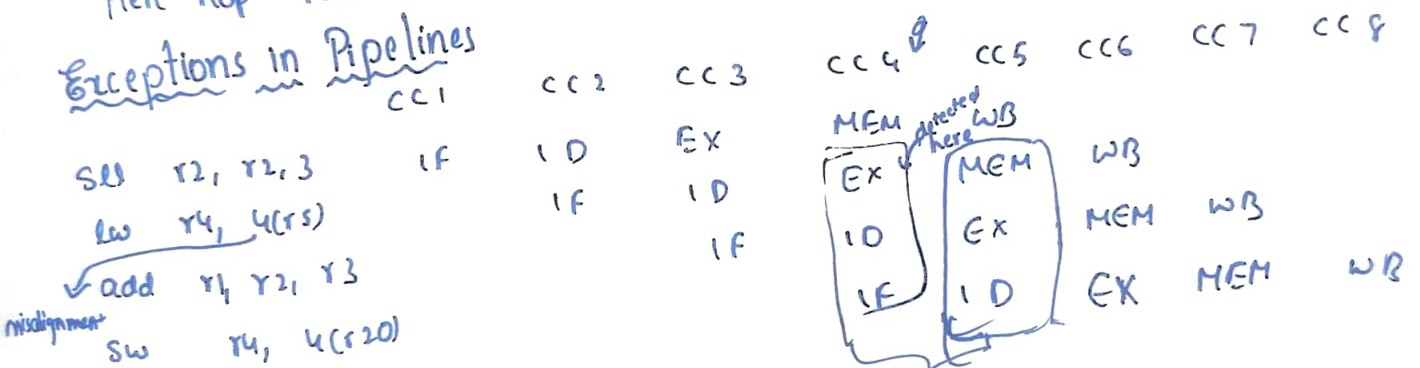 Exceptions in Pipelines
CC1 CC2 CC3 CC4 CC5 CC6 CC7 CC8
sll r2, r2, 3 IF ID EX MEM WB
detected here
lw r4, 4(r5) IF ID EX MEM WB
add r1, r2, r3 IF ID EX MEM WB
misalignment
sw r4, 4(r20) IF ID EX MEM WB